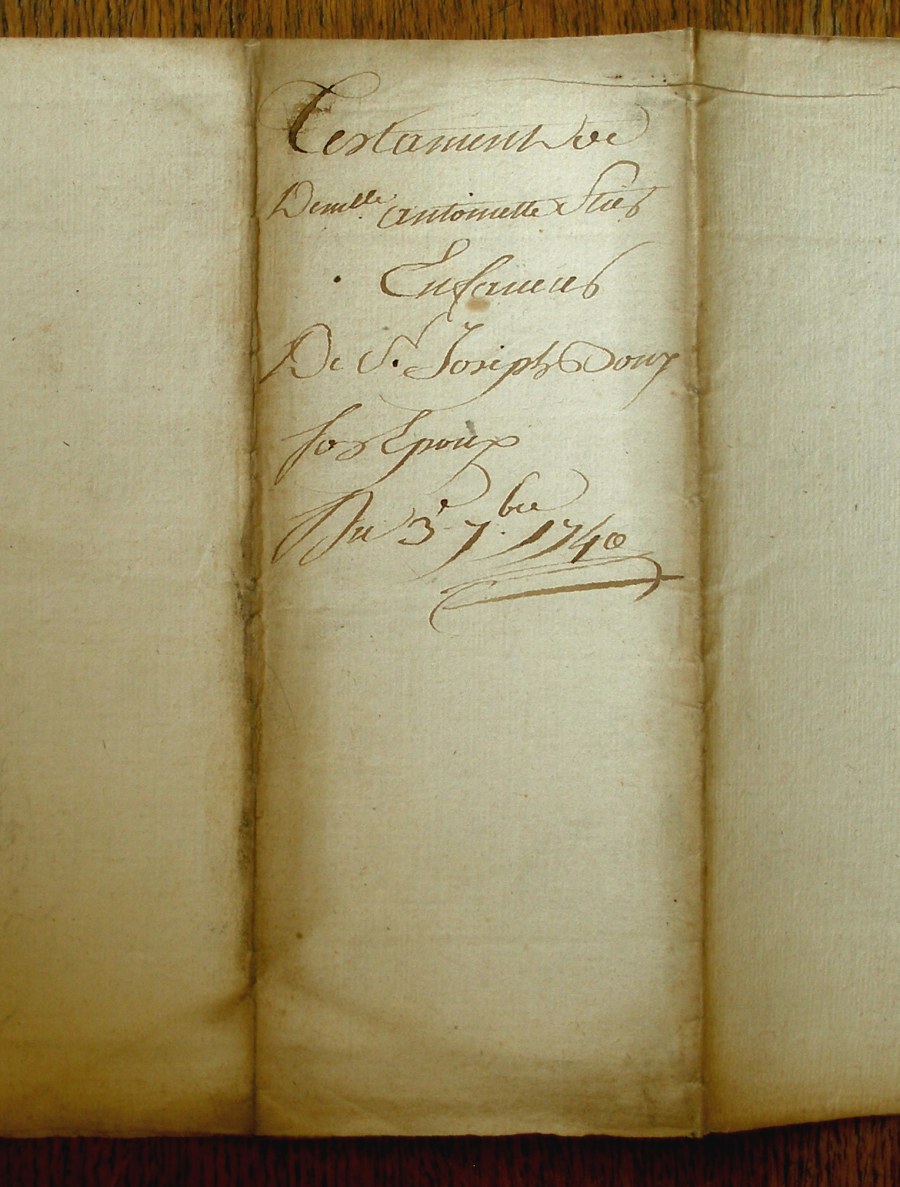 Testament de
Demlle antoinette
En faveur
De Sr. Joseph Doux
son Epoux
Du 3e 7.bre 1740